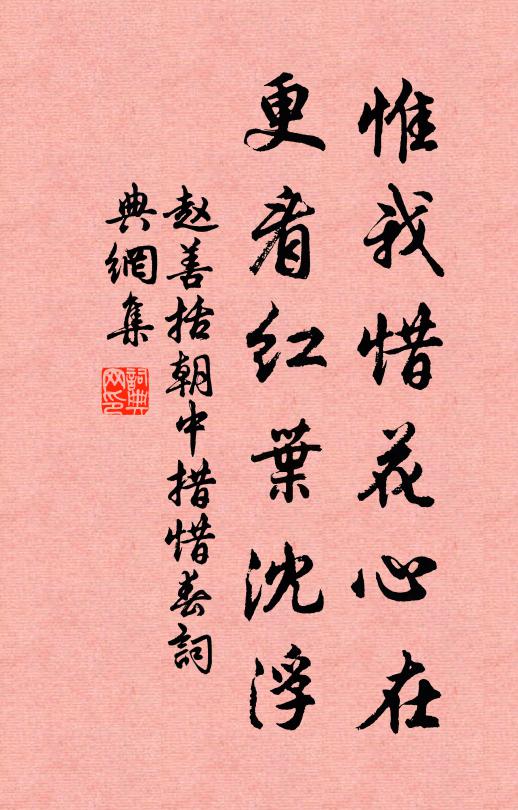 惟我惜花心在
更看红葉沈浮
赵善括朝中措惜春詞
典網集
詞典
网印